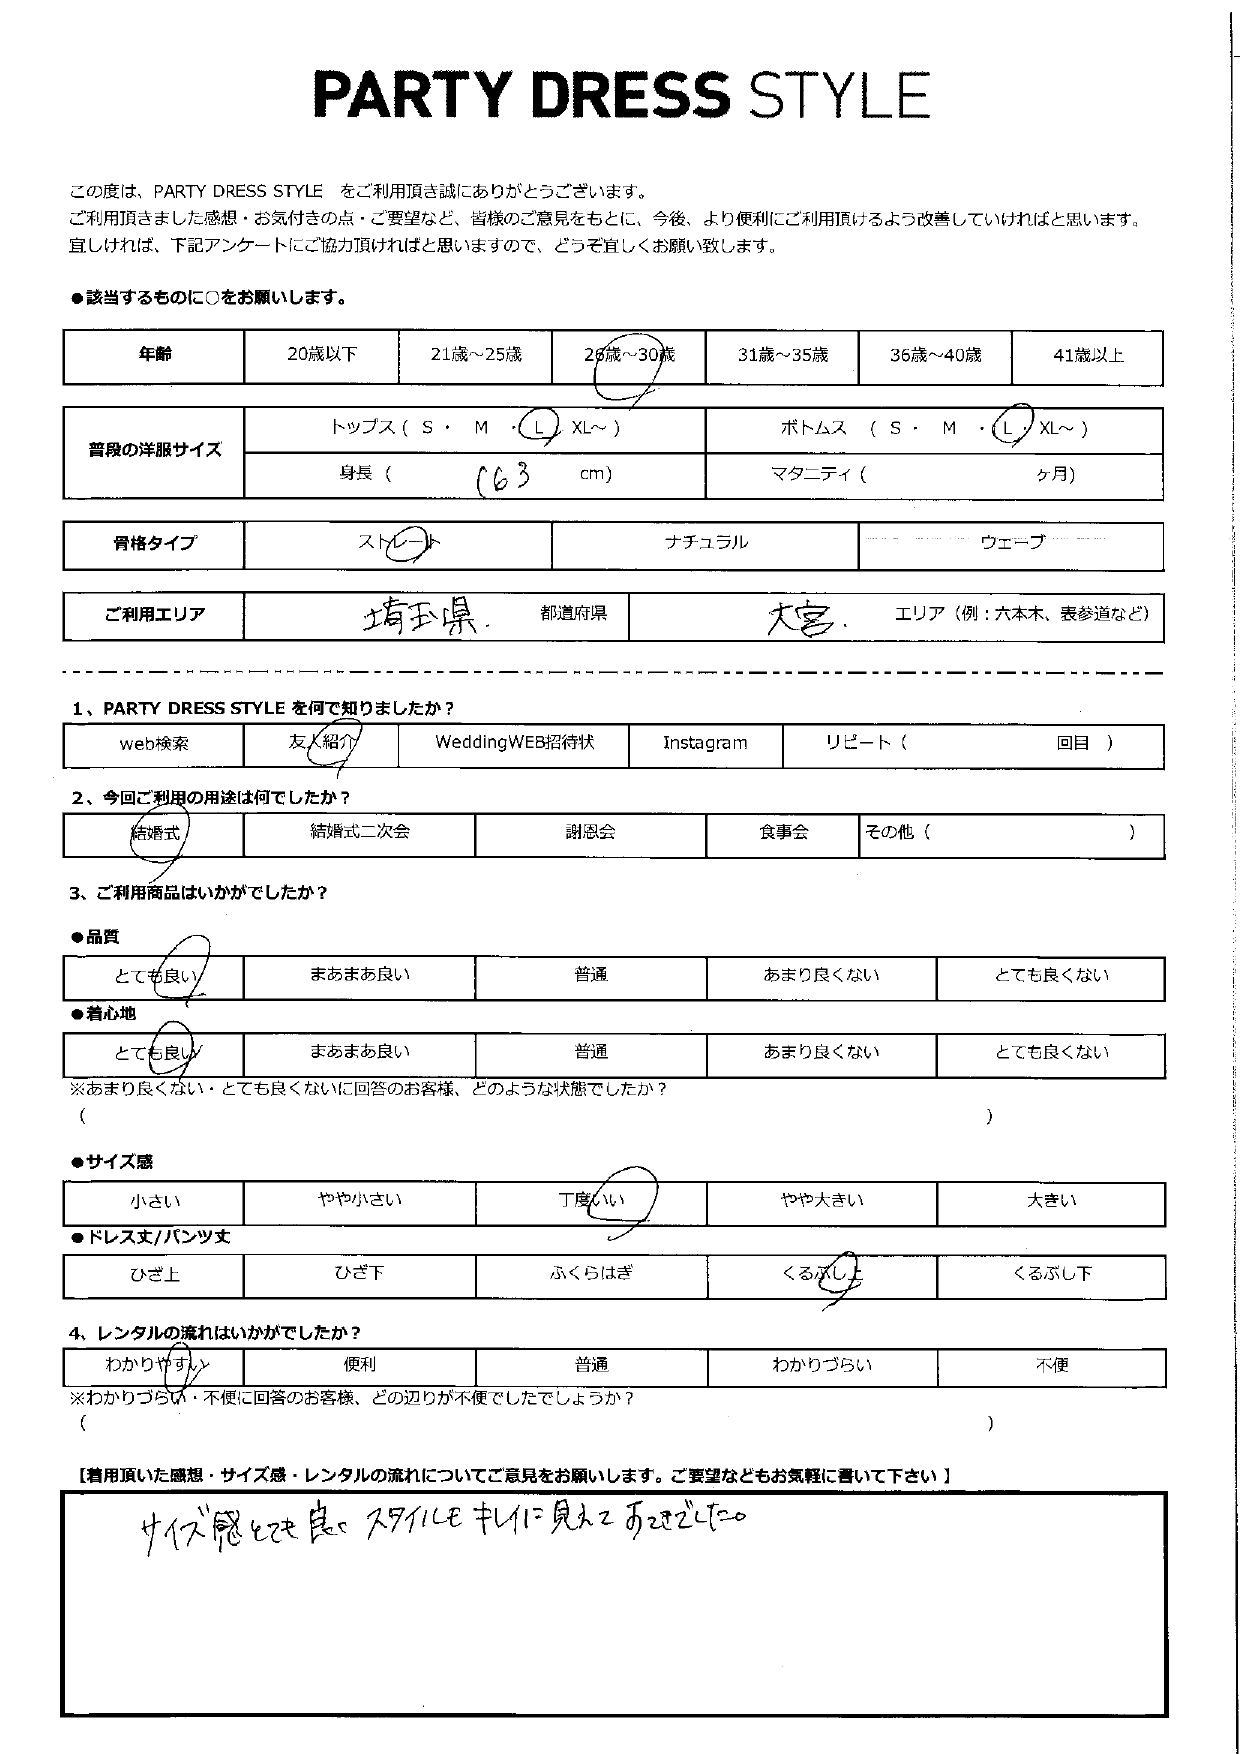 PARTY DRESS STYLE
この度は、PARTY DRESS STYLE をご利用頂き誠にありがとうございます。
ご利用頂きました感想・お気付きの点・ご要望など、皆様のご意見をもとに、今後、より便利にご利用頂けるよう改善していければと思います。
宜しければ、下記アンケートにご協力頂ければと思いますので、どうぞ宜しくお願い致します。
●該当するものに○をお願いします。
年齢 20歳以下 21歳～25歳 26歳～30歳 31歳～35歳 36歳～40歳 41歳以上
普段の洋服サイズ
トップス ( S ・ M ・ L ・ XL～ ) ボトムス ( S ・ M ・ L ・ XL～ )
身長 ( 163 cm) マタニティ ( ヶ月)
骨格タイプ ストレート ナチュラル ウェーブ
ご利用エリア 埼玉県. 都道府県 大宮. エリア（例：六本木、表参道など）
1、PARTY DRESS STYLE を何で知りましたか？
web検索 友人紹介 WeddingWEB招待状 Instagram リピート ( 回目 )
2、今回ご利用の用途は何でしたか？
結婚式 結婚式二次会 謝恩会 食事会 その他 ( )
3、ご利用商品はいかがでしたか？
●品質
とても良い まあまあ良い 普通 あまり良くない とても良くない
●着心地
とても良い まあまあ良い 普通 あまり良くない とても良くない
※あまり良くない・とても良くないに回答のお客様、どのような状態でしたか？
( )
●サイズ感
小さい やや小さい 丁度いい やや大きい 大きい
●ドレス丈/パンツ丈
ひざ上 ひざ下 ふくらはぎ くるぶし上 くるぶし下
4、レンタルの流れはいかがでしたか？
わかりやすい 便利 普通 わかりづらい 不便
※わかりづらい・不便に回答のお客様、どの辺りが不便でしたでしょうか？
( )
【着用頂いた感想・サイズ感・レンタルの流れについてご意見をお願いします。ご要望などもお気軽に書いて下さい 】
サイズ感とても良く スタイルも キレイに 見えて すてきでした。